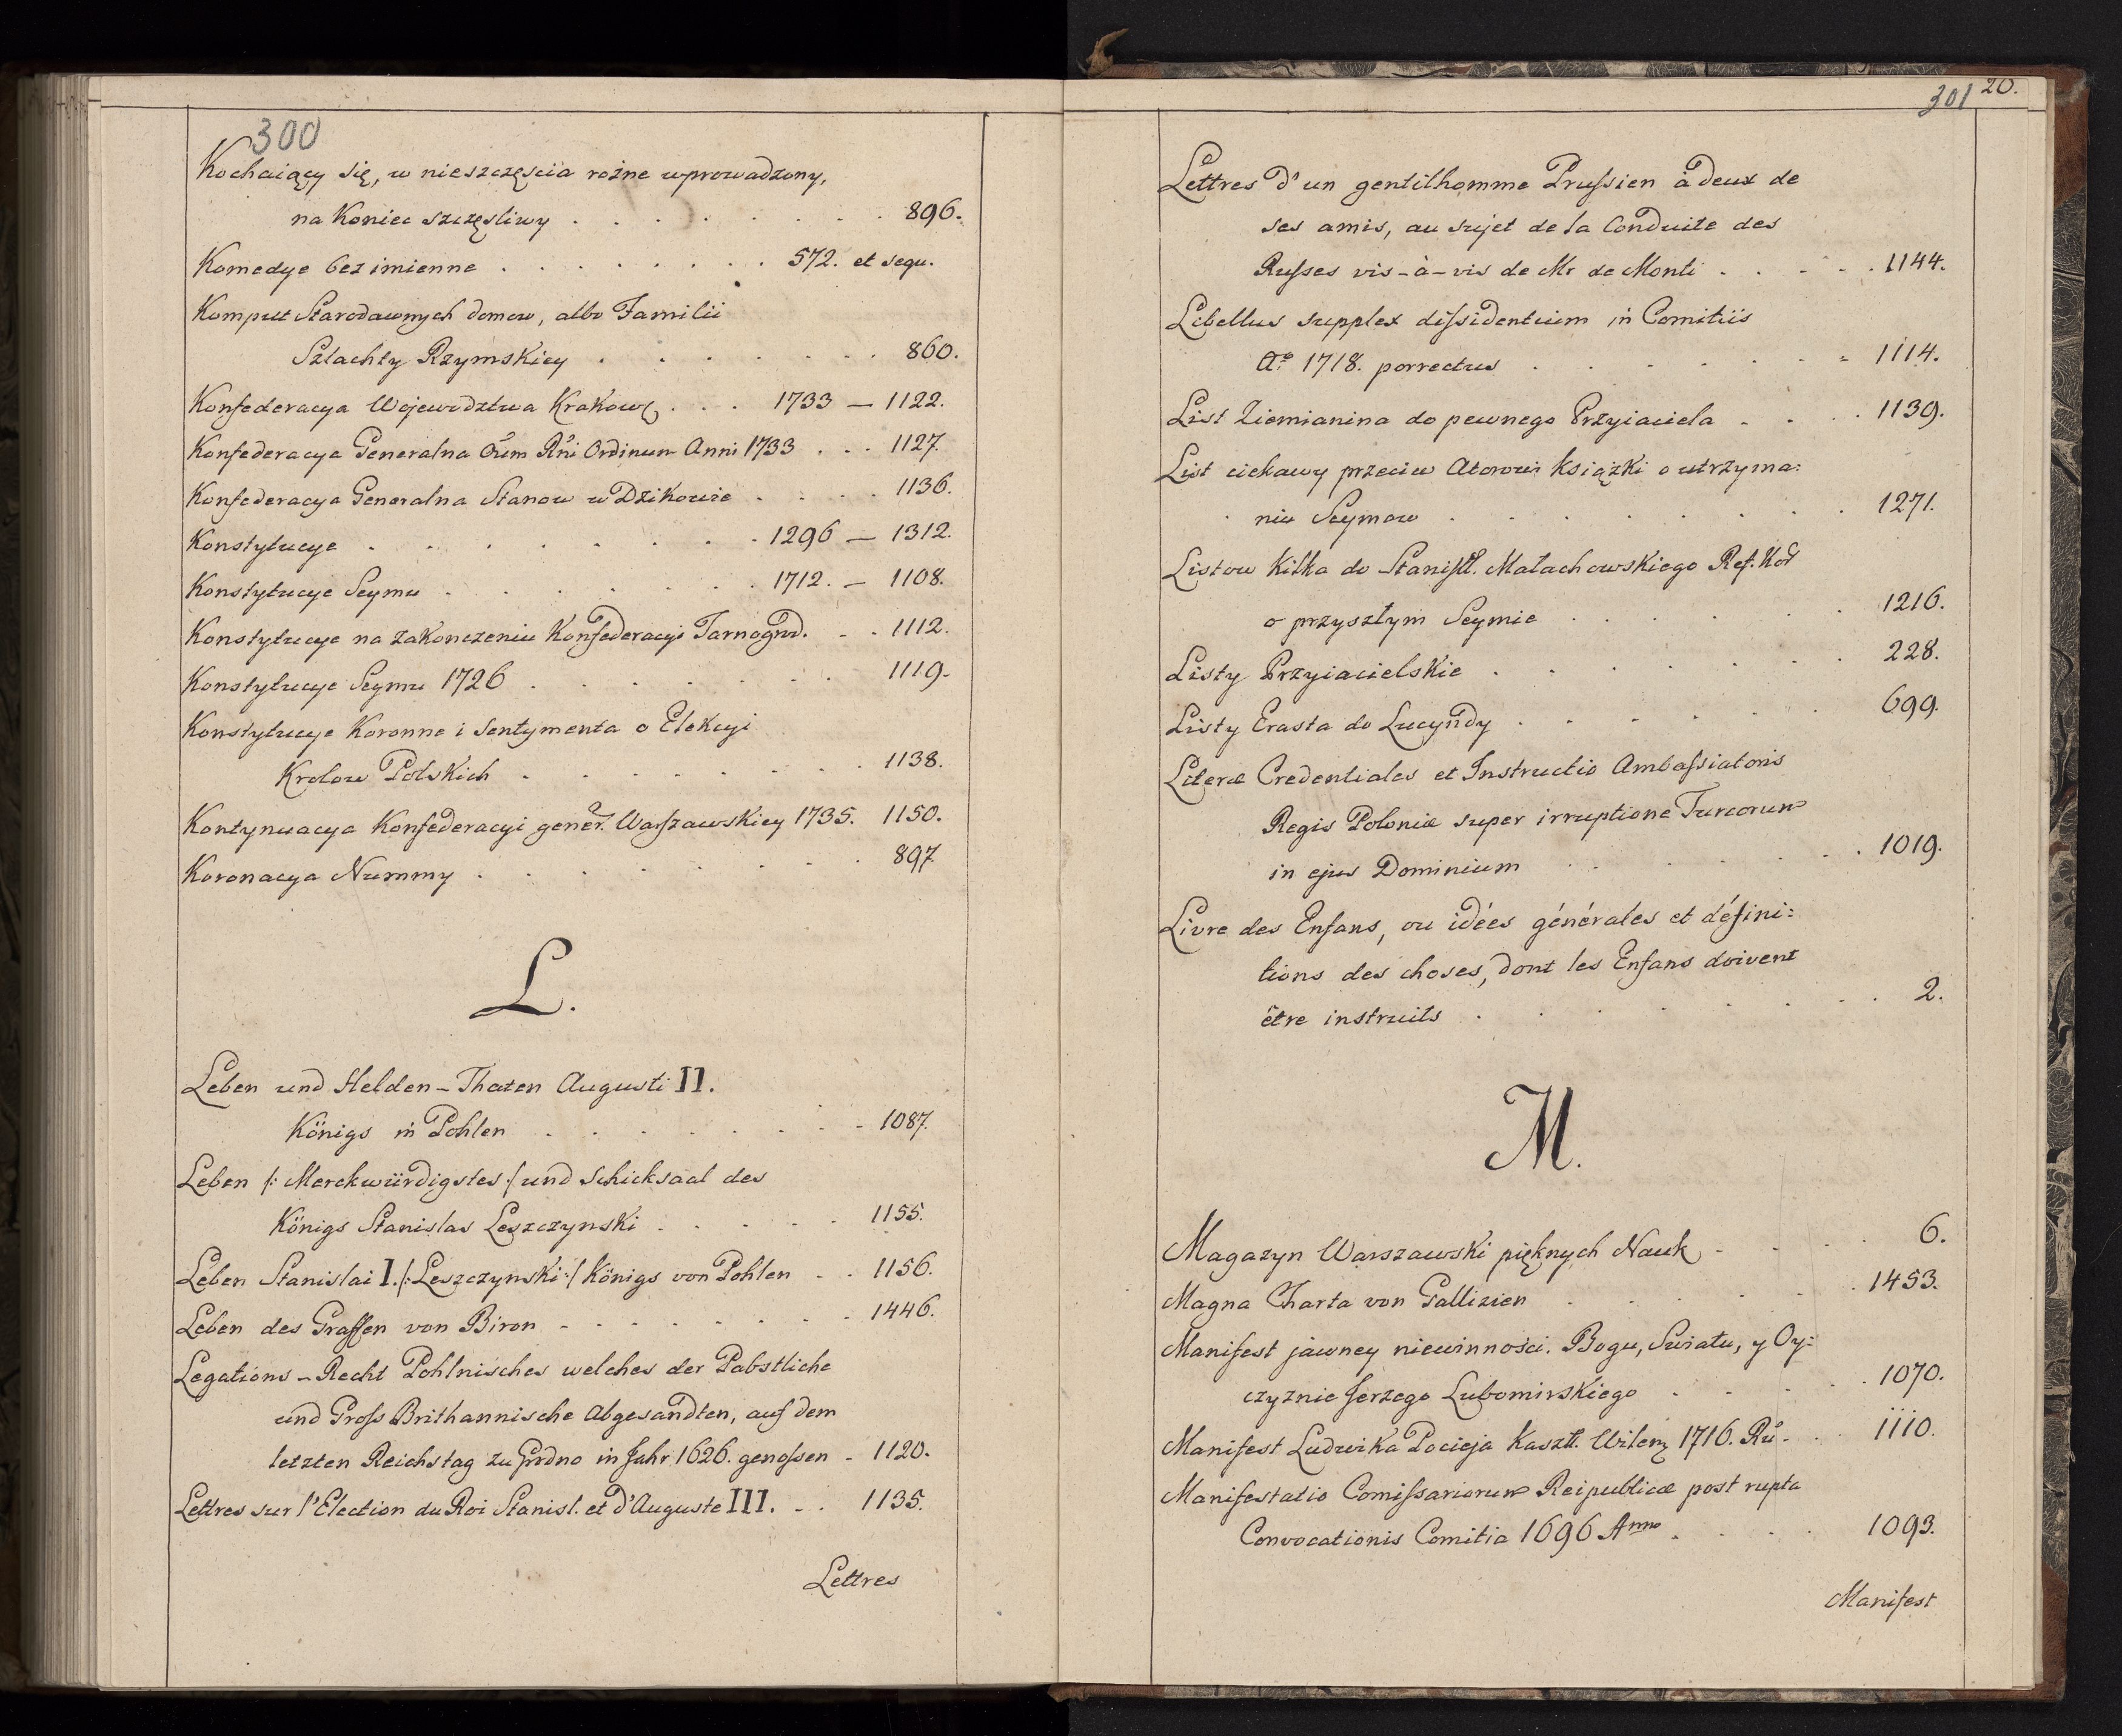 300
Kochaiący się, w nieszczęscia rożne wprowadzony,
na Koniec szczęsliwy . . . . . . . . 896.
Komedye bezimienne . . . . . . . . 572. et sequ.
Komput Starodawnych domow, albo Familii
Szlachty Rzymskiey . . . . . . . 860.
Konfederacya Wojewodztwa Krakow . . . 1733 — 1122.
Konfederacya Generalna Oūm Rn̄i Ordinum Anni 1733 . . . 1127.
Konfederacya Generalna Stanow w Dzikowie . . . . 1136.
Konstytucye . . . . . . . . 1296 — 1312.
Konstytucye Seymu . . . . . . . 1712. — 1108.
Konstytucye na zakonczeniu Konfederacyi Tarnogrod. . . 1112.
Konstytucye Seymu 1726 . . . . . . . 1119.
Konstytucye Koronne i Sentymenta o Elekcyi
Krolow Polskich . . . . . . . 1138.
Kontynuacya Konfederacyi gener. Warszawskiey 1735. 1150.
Koronacya Nummy . . . . . . . 897
L.
Leben und Helden-Thaten Augusti II.
Königs in Pohlen . . . . . . . 1087.
Leben /: Merckwürdigstes :/ und Schicksaal des
Königs Stanislas Leszczynski . . . . . 1155.
Leben Stanislai I. /: Leszczynski :/ Königs von Pohlen . . 1156.
Leben des Graffen von Biron . . . . . . . 1446.
Legations-Recht Pohlnisches welches der Pabstliche
und Gross Brithannische Abgesandten, auf dem
letzten Reichstag zu Grodno in Jahr 1626. genossen . 1120.
Lettres sur l'Election du Roi Stanisl. et d'Auguste III. . . 1135.
Lettres
301 20.
Lettres d'un gentilhomme Prussien à deux de
ses amis, au sujet de la Conduite des
Russes vis-à-vis de Mr de Monti . . . . . 1144.
Libellus supplex dissidentium in Comitiis
Aº 1718. porrectus . . . . . . 1114.
List Ziemianina do pewnego Przyiaciela . . . 1139.
List ciekawy przeciw Atorowi książki o utrzyma:
niu Seymow . . . . . . . 1271.
Listow kilka do Stanisł. Małachowskiego Ref. Kor
o przyszłym Seymie . . . . . 1216.
Listy Przyiacielskie . . . . . . 228.
Listy Erasta do Lucyndy . . . . . . 699.
Literæ Credentiales et Instructio Ambassiatoris
Regis Poloniæ super irruptione Turcorum
in ejus Dominium . . . . . . 1019.
Livre des Enfans, ou idées générales et défini:
tions des choses, dont les Enfans doivent
être instruits . . . . . . . 2.
M.
Magazyn Warszawski pięknych Nauk . . . . 6.
Magna Charta von Gallizien . . . . . . 1453.
Manifest jawney niewinności. Bogu, Swiatu, y Oy:
czyznie Jerzego Lubomirskiego . . . . . 1070.
Manifest Ludwika Pocieja Kaszt. Wilen 1716. Ru . . . 1110.
Manifestatio Comissariorum Reipublicæ post rupta
Convocationis Comitia 1696 Anno . . . . 1093.
Manifest